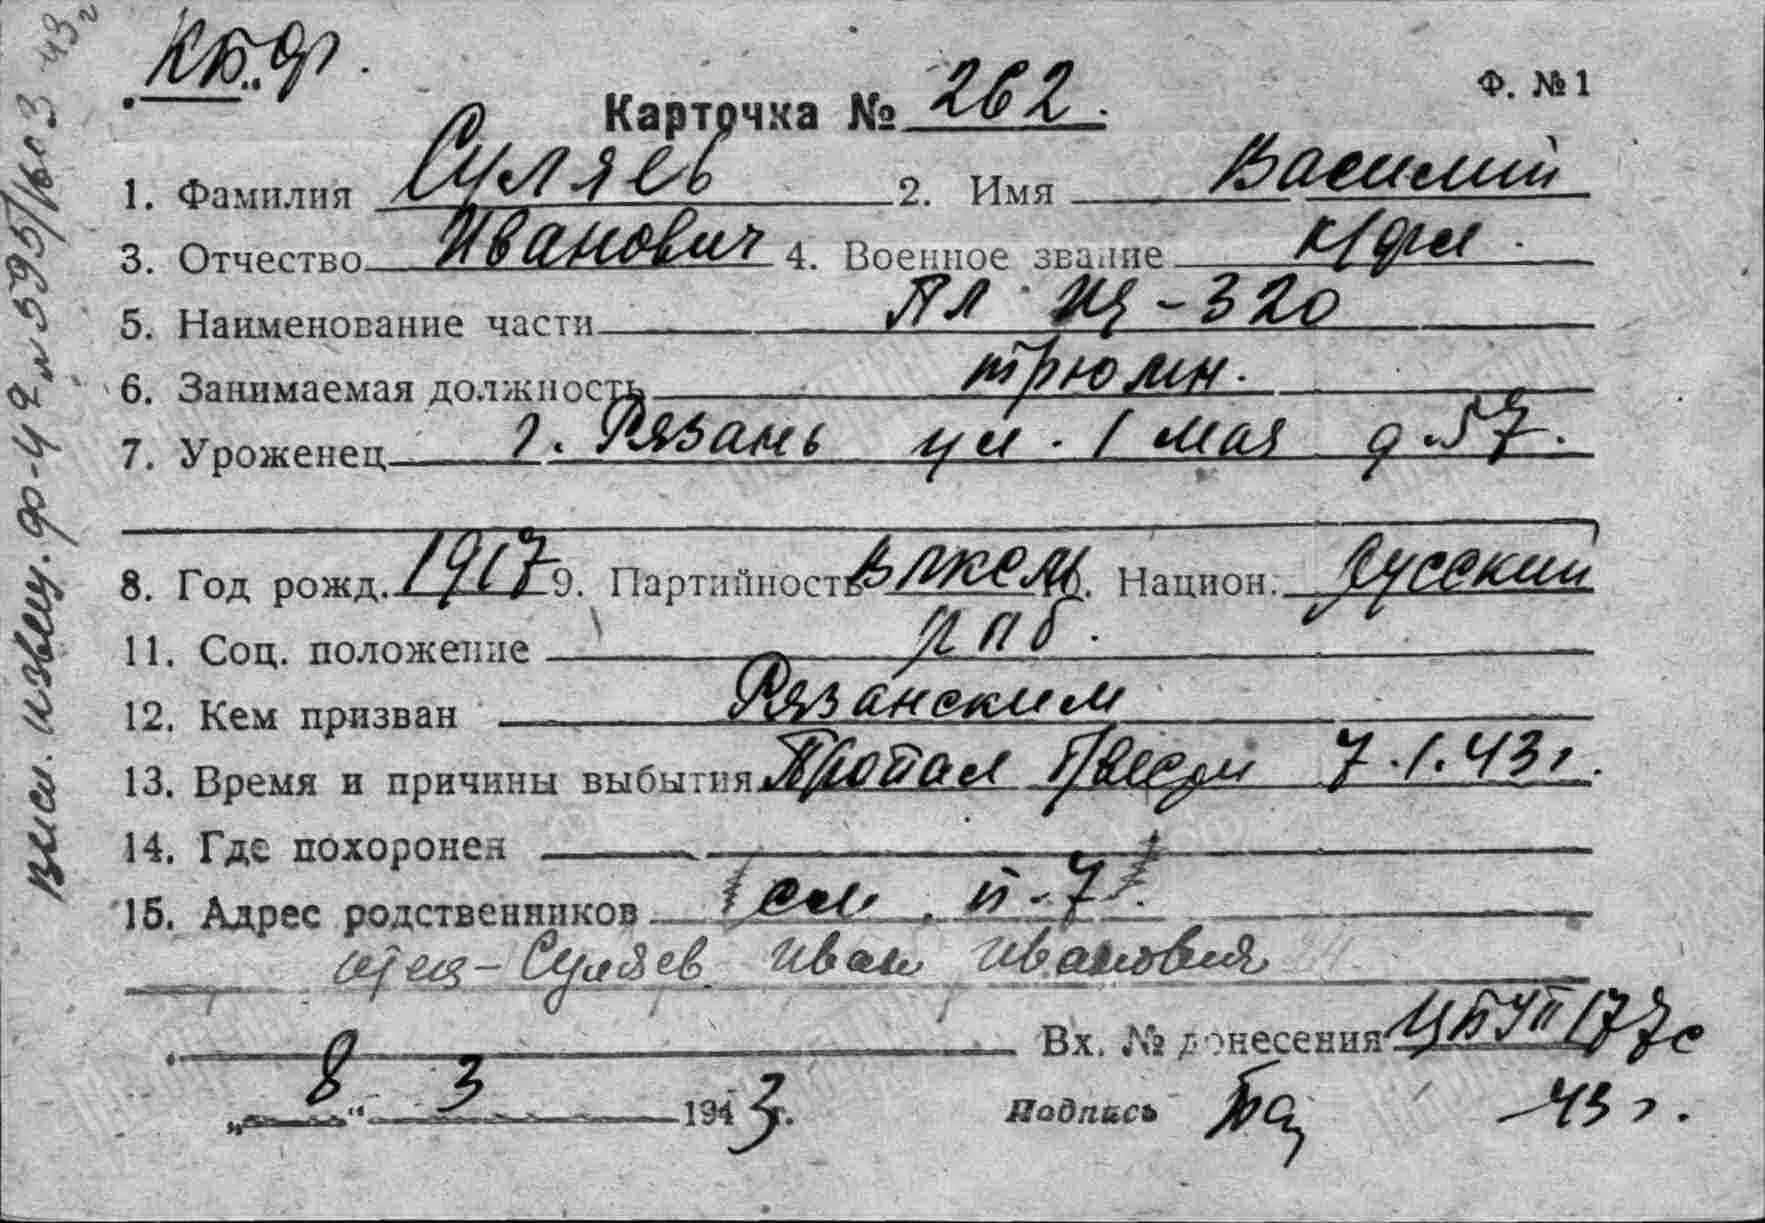 КБФ.
Ф. № 1
Карточка № 262.
1. Фамилия Суляев 2. Имя Василий
3. Отчество Иванович 4. Военное звание к/фл.
5. Наименование части Пл Щ-320
6. Занимаемая должность трюмн.
7. Уроженец г. Рязань ул. 1 мая д. 57.
8. Год рожд. 1917 9. Партийность ВЛКСМ 10. Национ. русский
11. Соц. положение раб.
12. Кем призван Рязанским
13. Время и причины выбытия Пропал 7.1.43г.
14. Где похоронен
15. Адрес родственников см. п-7
отец - Суляев Иван Иванович
Вх. № донесения 177с
„8“ 3 1943г.
Подпись 43 г.
извещ. ф-4 2 № 595/1603 43г